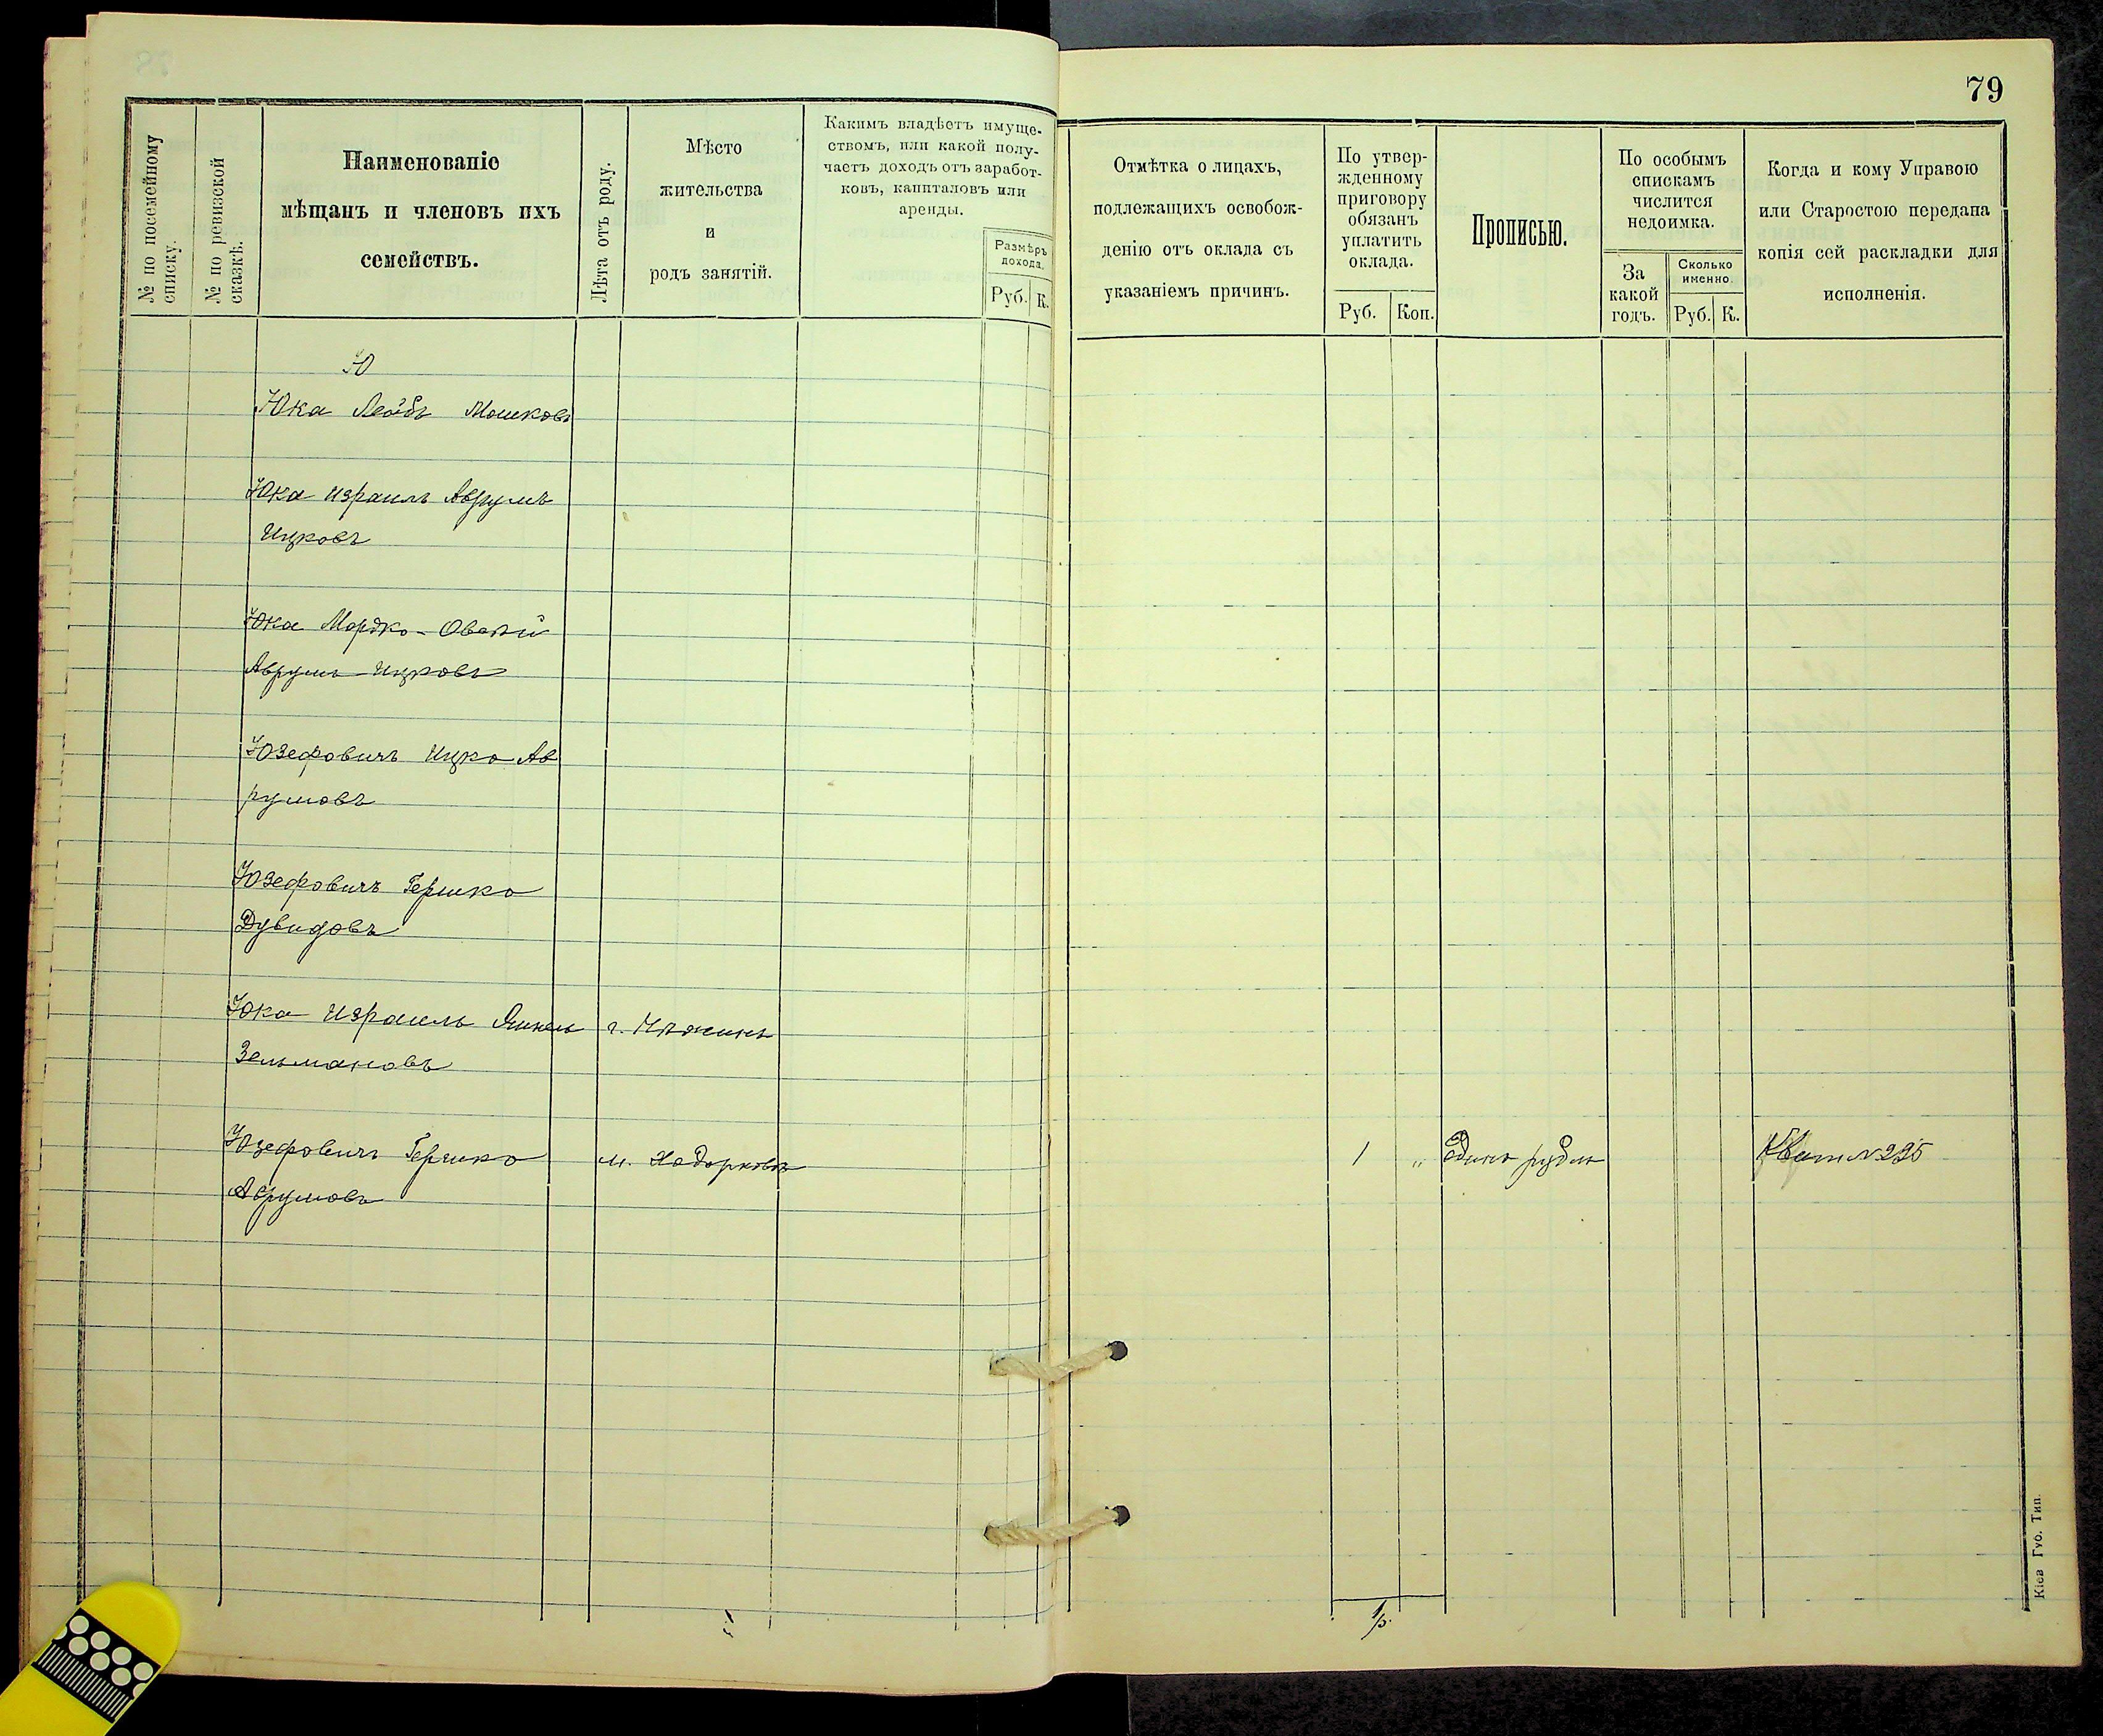 79
№ по посемейному
списку.
№ по ревизской
сказкѣ.
Наименованіе
мѣщанъ и членовъ ихъ
семействъ.
Лѣта отъ роду.
Мѣсто
жительства
и
родъ занятій.
Какимъ владѣетъ имуще-
ствомъ, или какой полу-
чаетъ доходъ отъ заработ-
ковъ, капиталовъ или
аренды.
Размѣръ
дохода.
Руб. К.
Отмѣтка о лицахъ,
подлежащихъ освобож-
денію отъ оклада съ
указаніемъ причинъ.
По утвер-
жденному
приговору
обязанъ
уплатить
оклада.
Руб. Коп.
Прописью.
По особымъ
спискамъ
числится
недоимка.
За
какой
годъ.
Сколько
именно.
Руб. К.
Когда и кому Управою
или Старостою передана
копія сей раскладки для
исполненія.
Ю
Юка Лейбъ Мошковъ
Юка Израиль Аврумъ
Ицковъ
Юка Мордко-Овший
Аврумъ Ицковъ
Юзефовичъ Ицко Ав
румовъ
Юзефовичъ Гершко
Дувидовъ
Юка Израиль Янкель г. Нѣжинъ
Зельмановъ
Юзефовичъ Гершко м. Ходорковъ 1 „ Одинъ рубль Квит № 225
Аврумовъ
1 р.
Кіев Губ. Тип.